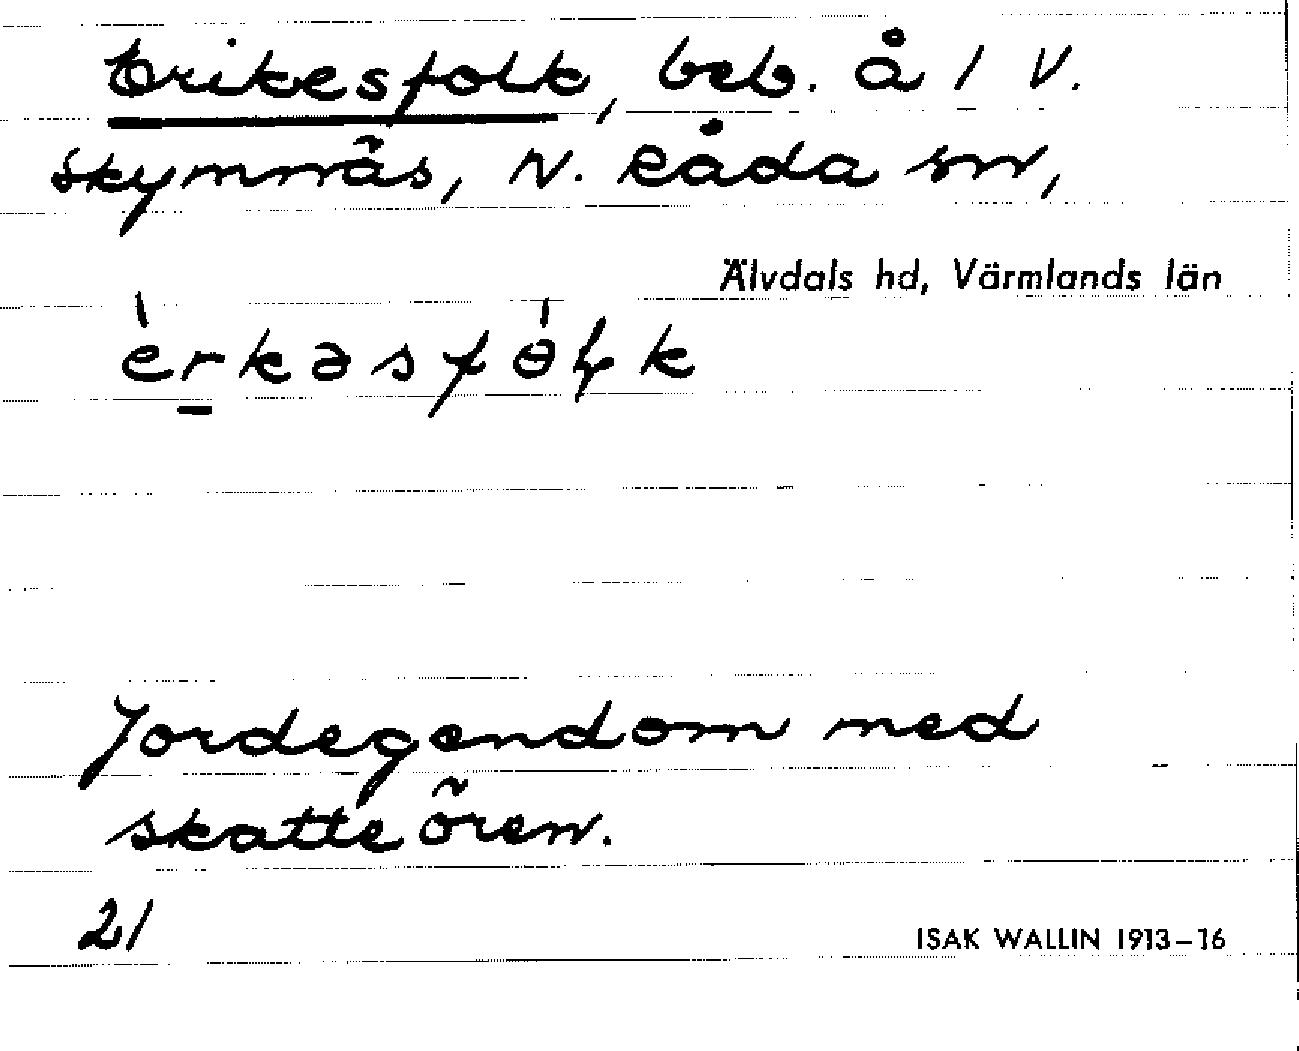 Erikesfolk, beb. å 1 V.
Skymnäs, N. Råda sn,
Älvdals hd, Värmlands län
èrkəsfɵ̀ɽk
Jordegendom med
skatteören.
21
ISAK WALLIN 1913–16